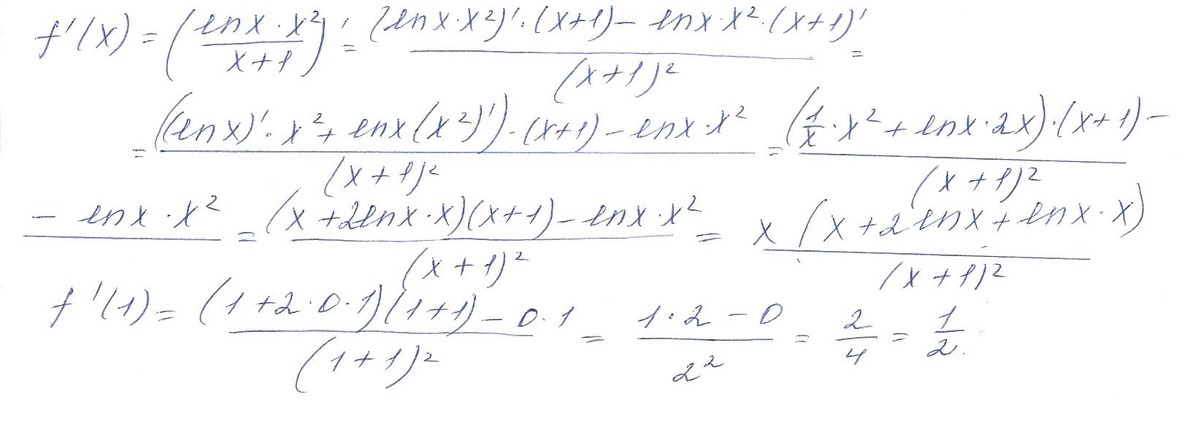 f'(x) = (lnx·x²/(x+1))' = ((lnx·x²)'·(x+1) − lnx·x²·(x+1)')/(x+1)² =
= (((lnx)'·x² + lnx(x²)')·(x+1) − lnx·x²)/(x+1)² = ((1/x·x² + lnx·2x)·(x+1) −
− lnx·x²)/(x+1)² = ((x+2lnx·x)(x+1) − lnx·x²)/(x+1)² = x(x+2lnx+lnx·x)/(x+1)²
f'(1) = ((1+2·0·1)(1+1) − 0·1)/(1+1)² = (1·2 − 0)/2² = 2/4 = 1/2.